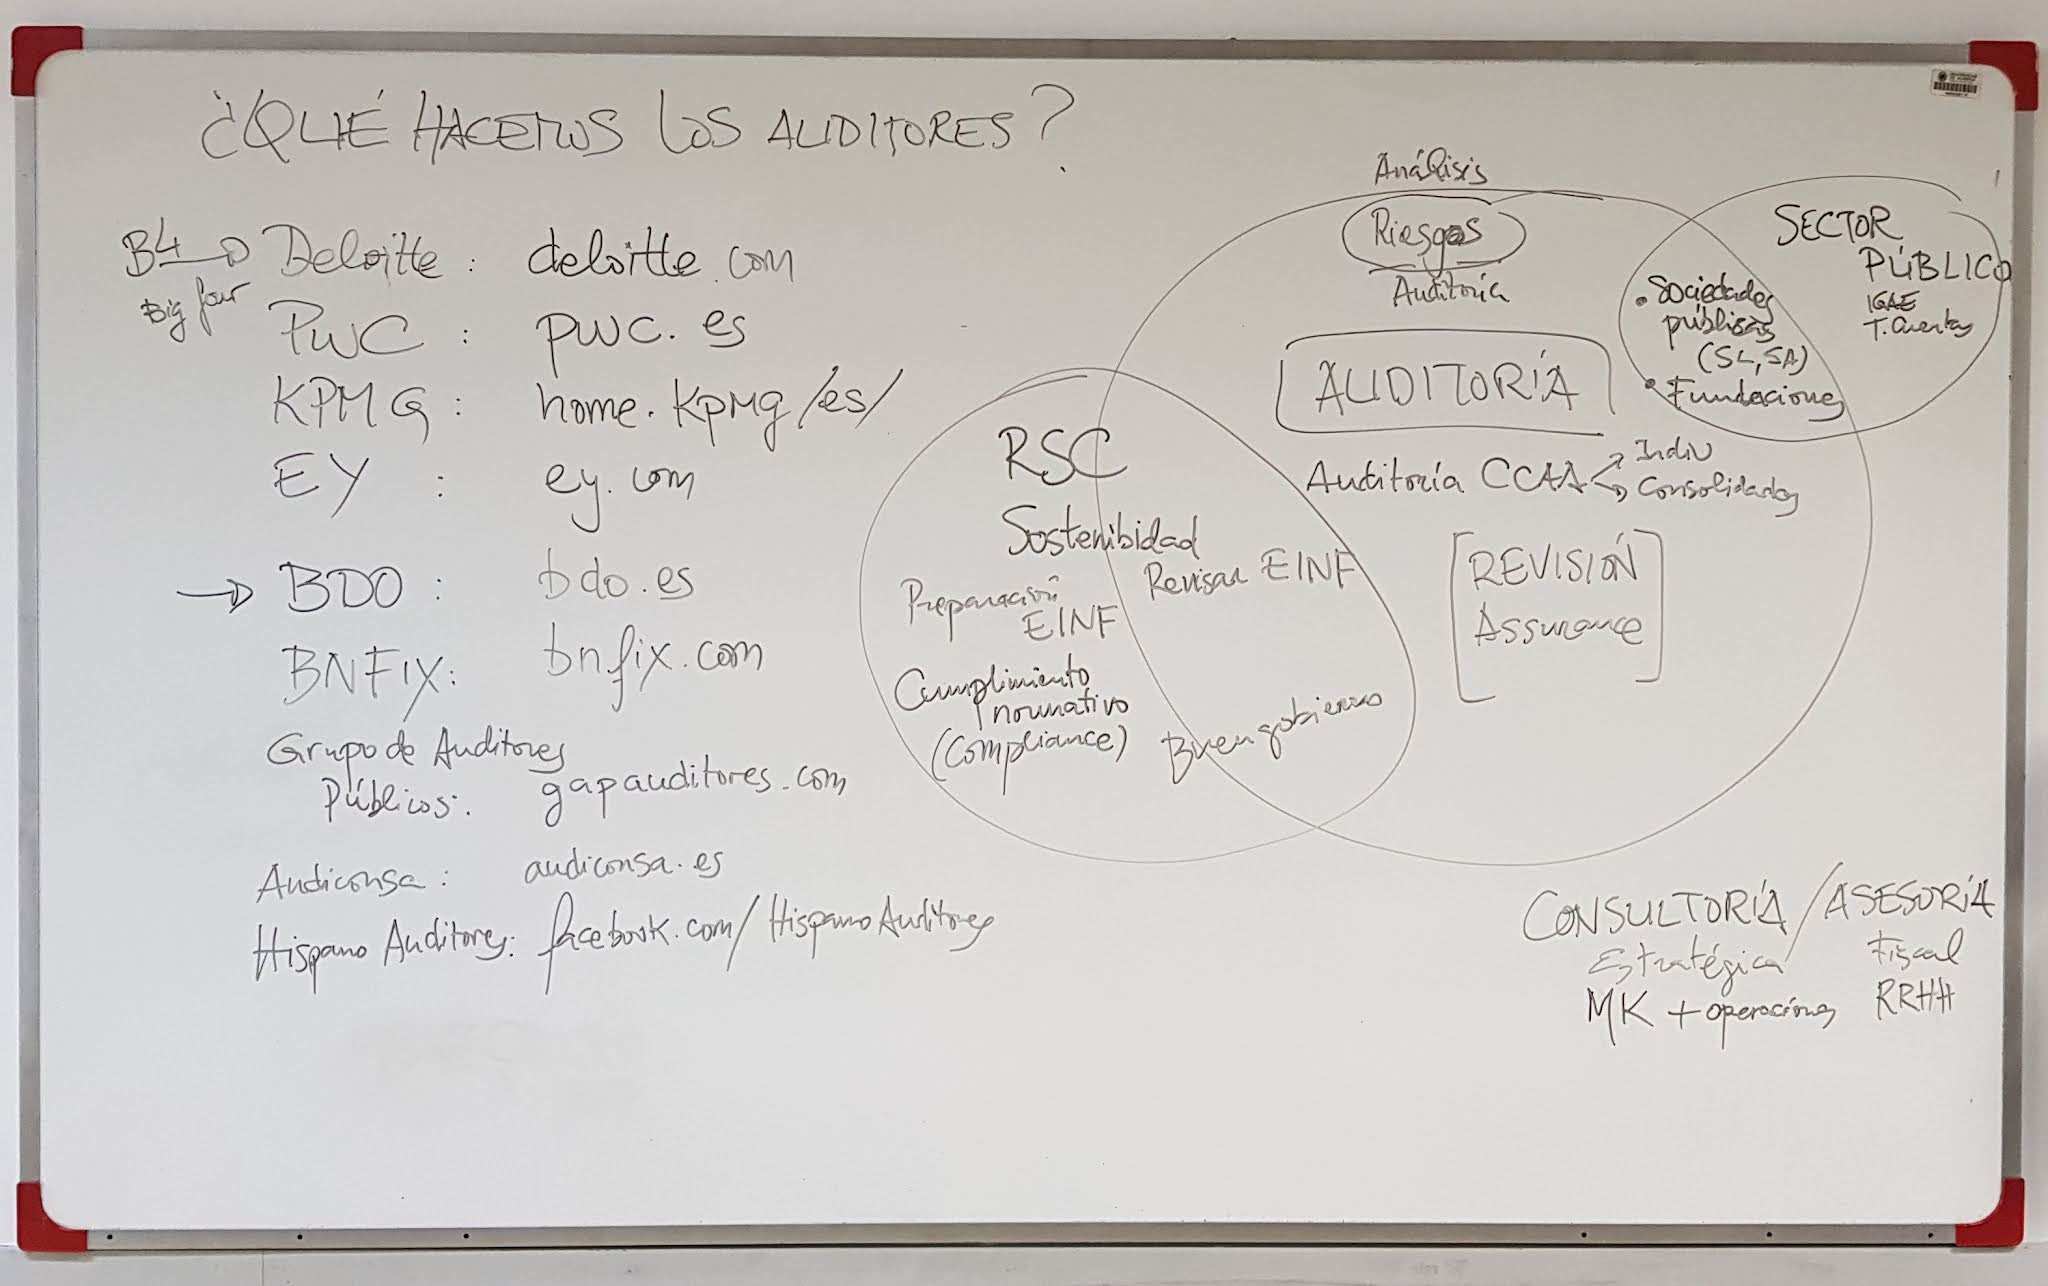 ¿QUÉ HACEMOS LOS AUDITORES?
B4 → Deloitte : deloitte.com
Big four
PWC : pwc.es
KPMG : home.kpmg/es/
EY : ey.com
→ BDO : bdo.es
BNFIX: bnfix.com
Grupo de Auditores
Públicos: gapauditores.com
Audiconsa: audiconsa.es
Hispano Auditores: facebook.com/HispanoAuditores
Análisis
Riesgos
Auditoría
AUDITORÍA
Auditoría CCAA
Indiv
Consolidadas
[REVISIÓN
Assurance]
SECTOR
PÚBLICO
IGAE
T. Cuentas
• Sociedades
públicas
(SL, SA)
• Fundaciones
RSC
Sostenibidad
Revisar EINF
Preparación
EINF
Cumplimiento
normativo
(Compliance)
Buen gobierno
CONSULTORÍA / ASESORÍA
Estratégica
Fiscal
MK + operaciones
RRHH